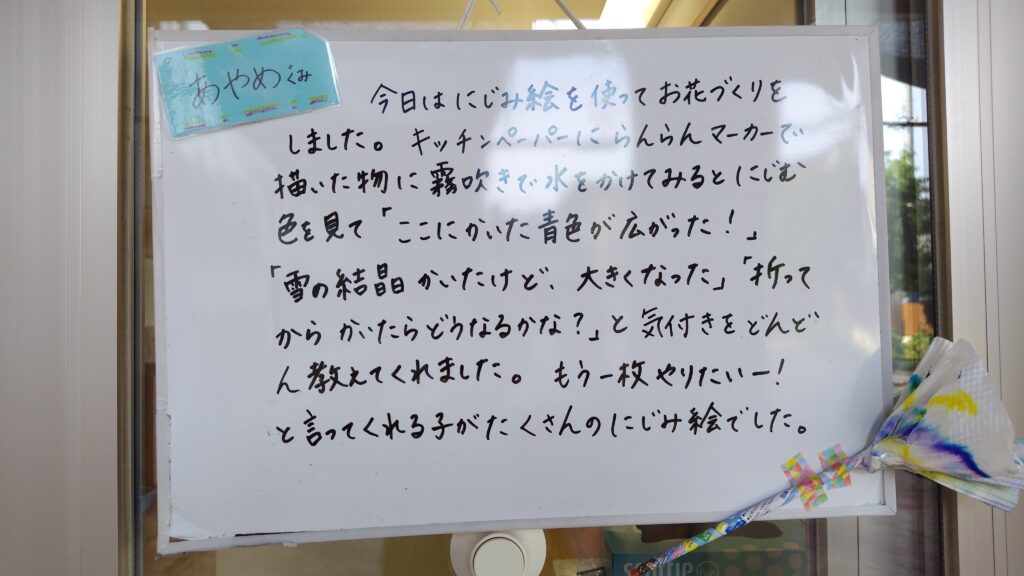 あやめぐみ
今日はにじみ絵を使ってお花づくりを
しました。キッチンペーパーにらんらんマーカーで
描いた物に霧吹きで水をかけてみるとにじむ
色を見て「ここにかいた青色が広がった！」
「雪の結晶かいたけど、大きくなった」「折って
からかいたらどうなるかな？」と気付きをどんど
ん教えてくれました。もう一枚やりたいー！
と言ってくれる子がたくさんのにじみ絵でした。